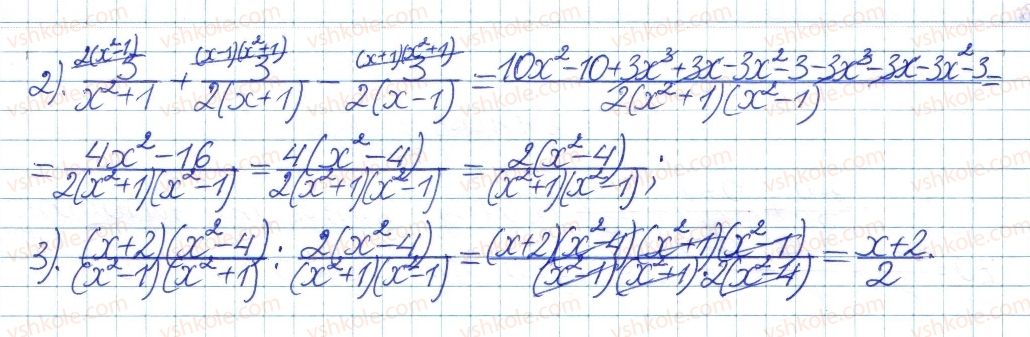 2(x²-1) (x-1)(x²+1) (x+1)(x²+1)
2). 3/(x²+1) + 3/(2(x+1)) - 3/(2(x-1)) = (10x²-10+3x³+3x-3x²-3-3x³-3x-3x²-3)/(2(x²+1)(x²-1)) =
= (4x²-16)/(2(x²+1)(x²-1)) = 4(x²-4)/(2(x²+1)(x²-1)) = 2(x²-4)/((x²+1)(x²-1));
3). (x+2)(x²-4)/((x²-1)(x²+1)) : 2(x²-4)/((x²+1)(x²-1)) = (x+2)(x²-4)(x²+1)(x²-1)/((x²-1)(x²+1)·2(x²-4)) = (x+2)/2.